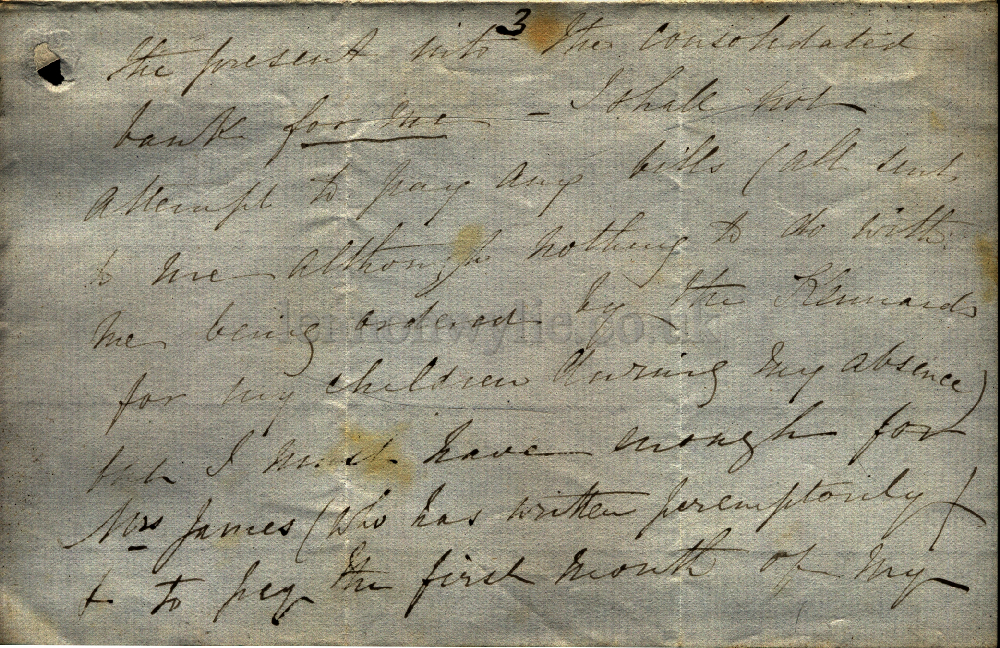 3
the present into the consolidated
bank for me - I shall not
attempt to pay any bills (all sent
to me although nothing to do with
me being ordered by the Kennards
for my children during my absence)
but I must have enough for
Mrs James (who has written peremptorily)
& to pay the first month of my
lennonwylie.co.uk